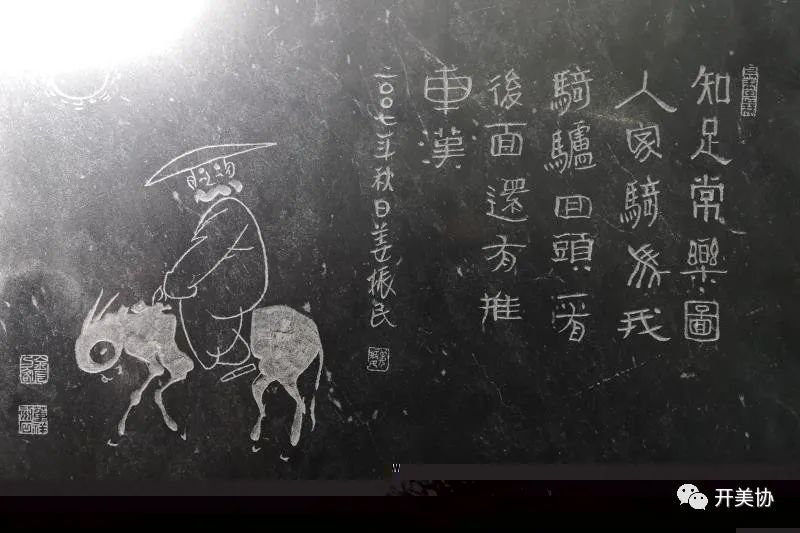 知足常樂圖
人家騎馬我
騎驢回頭看
後面還有推
車漢
二〇〇七年秋日姜振民
开美协